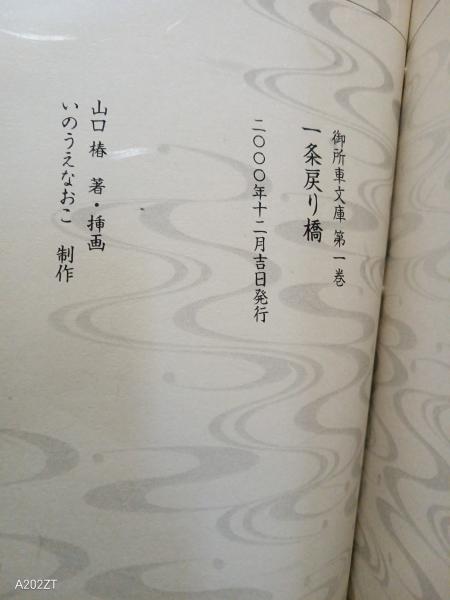 御所車文庫 第一巻
一条戻り橋
二〇〇〇年十二月吉日発行
山口 椿 著・挿画
いのうえなおこ 制作
A202ZT